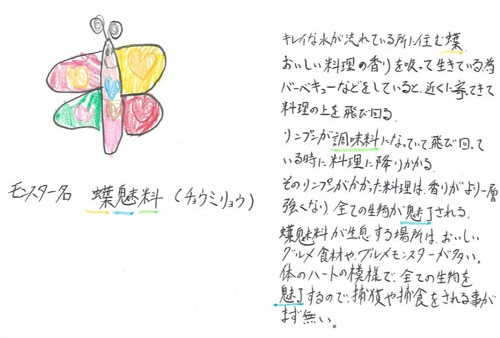 モンスター名 蝶魅料(チョウミリョウ)
キレイな水が流れている所に住む蝶。
おいしい料理の香りを吸って生きている為
バーベキューなどをしていると、近くに寄ってきて
料理の上を飛び回る。
リンプンが調味料になっていて飛び回って
いる時に料理に降りかかる。
そのリンプンがかかった料理は、香りがより一層
強くなり全ての生物が魅了される。
蝶魅料が生息する場所は、おいしい
グルメ食材や、グルメモンスターが多い。
体のハートの模様で、全ての生物を
魅了するので捕獲や捕食をされる事が
まず無い。